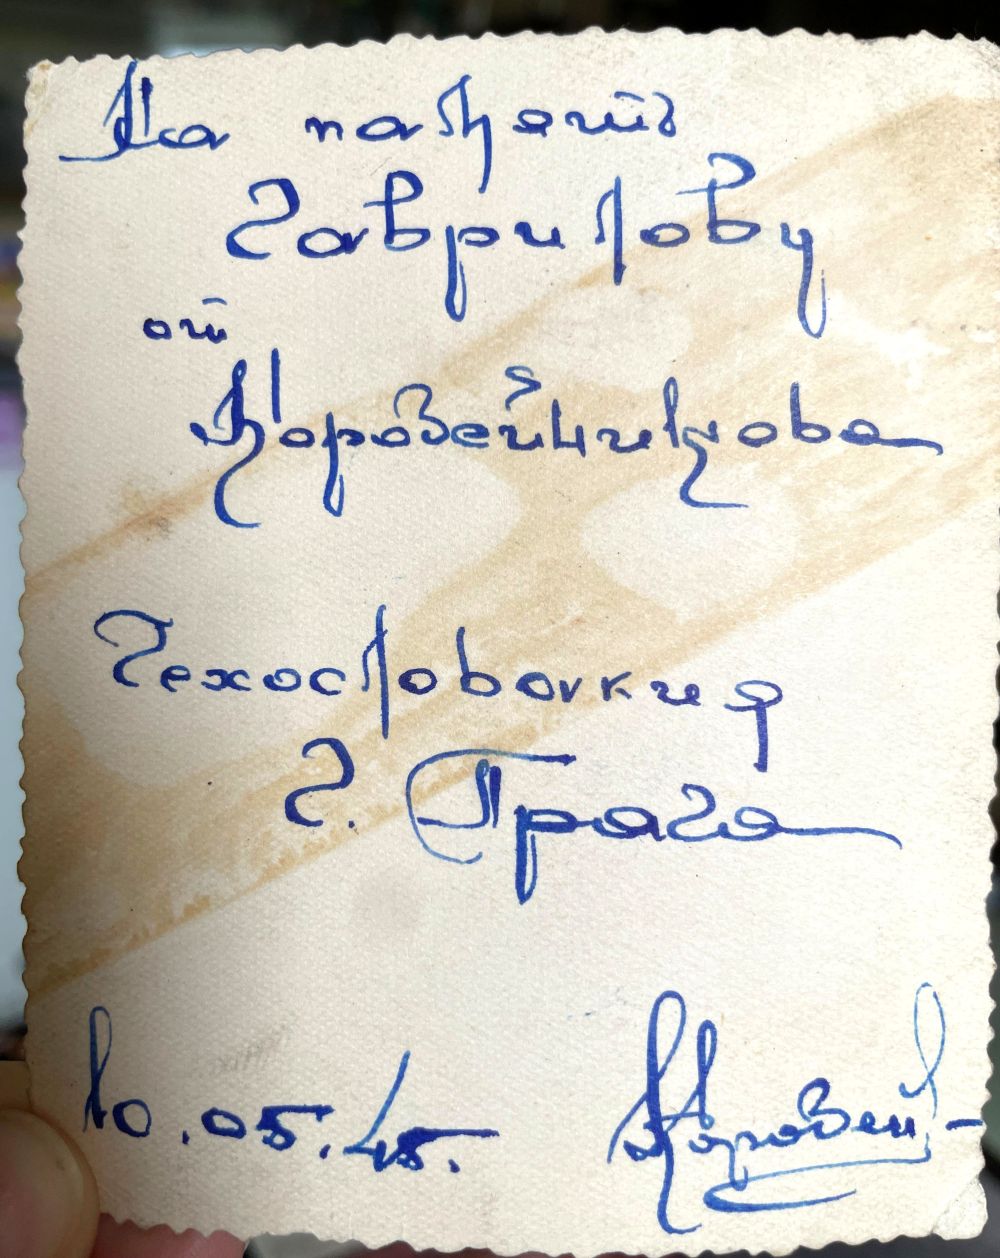 На память
Гаврилову
от
Коровейникова
Чехословакия
г. Прага
10.05.45.
Коровей-